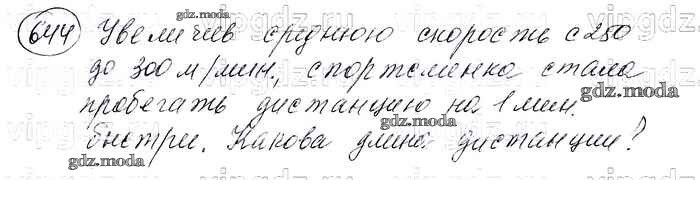 644 Увеличив среднюю скорость с 250
до 300 м/мин., спортсменка стала
пробегать дистанцию на 1 мин.
быстрее. Какова длина дистанции?
gdz.moda
gdz.moda
gdz.moda
gdz.moda
gdz.moda
gdz.moda
gdz.moda